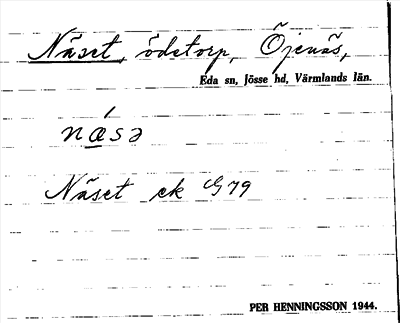 Näset, ödetorp, Öjenäs,
Eda sn, Jösse hd, Värmlands län.
nǽsə
Näset ek G 79
PER HENNINGSSON 1944.